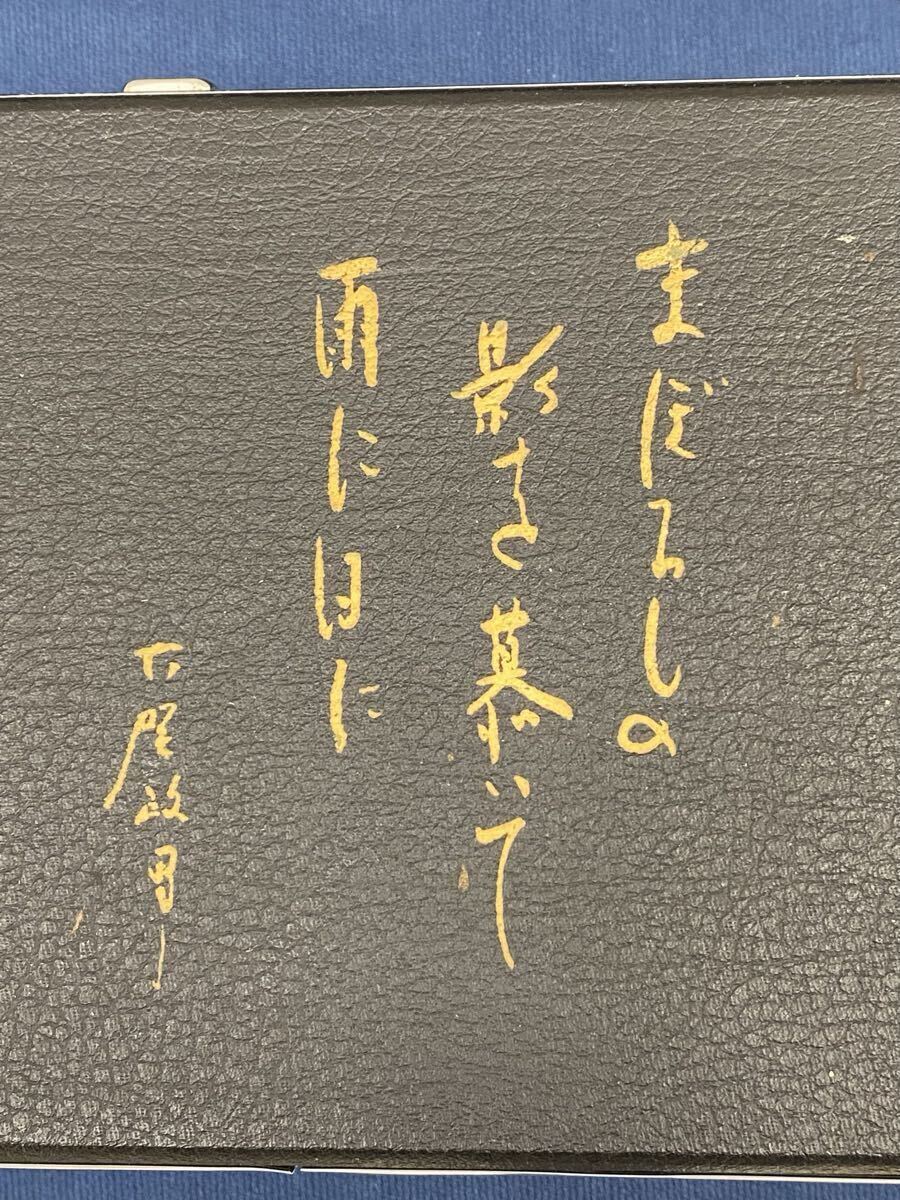 まぼろしの
影を慕いて
雨に日に
古賀政男